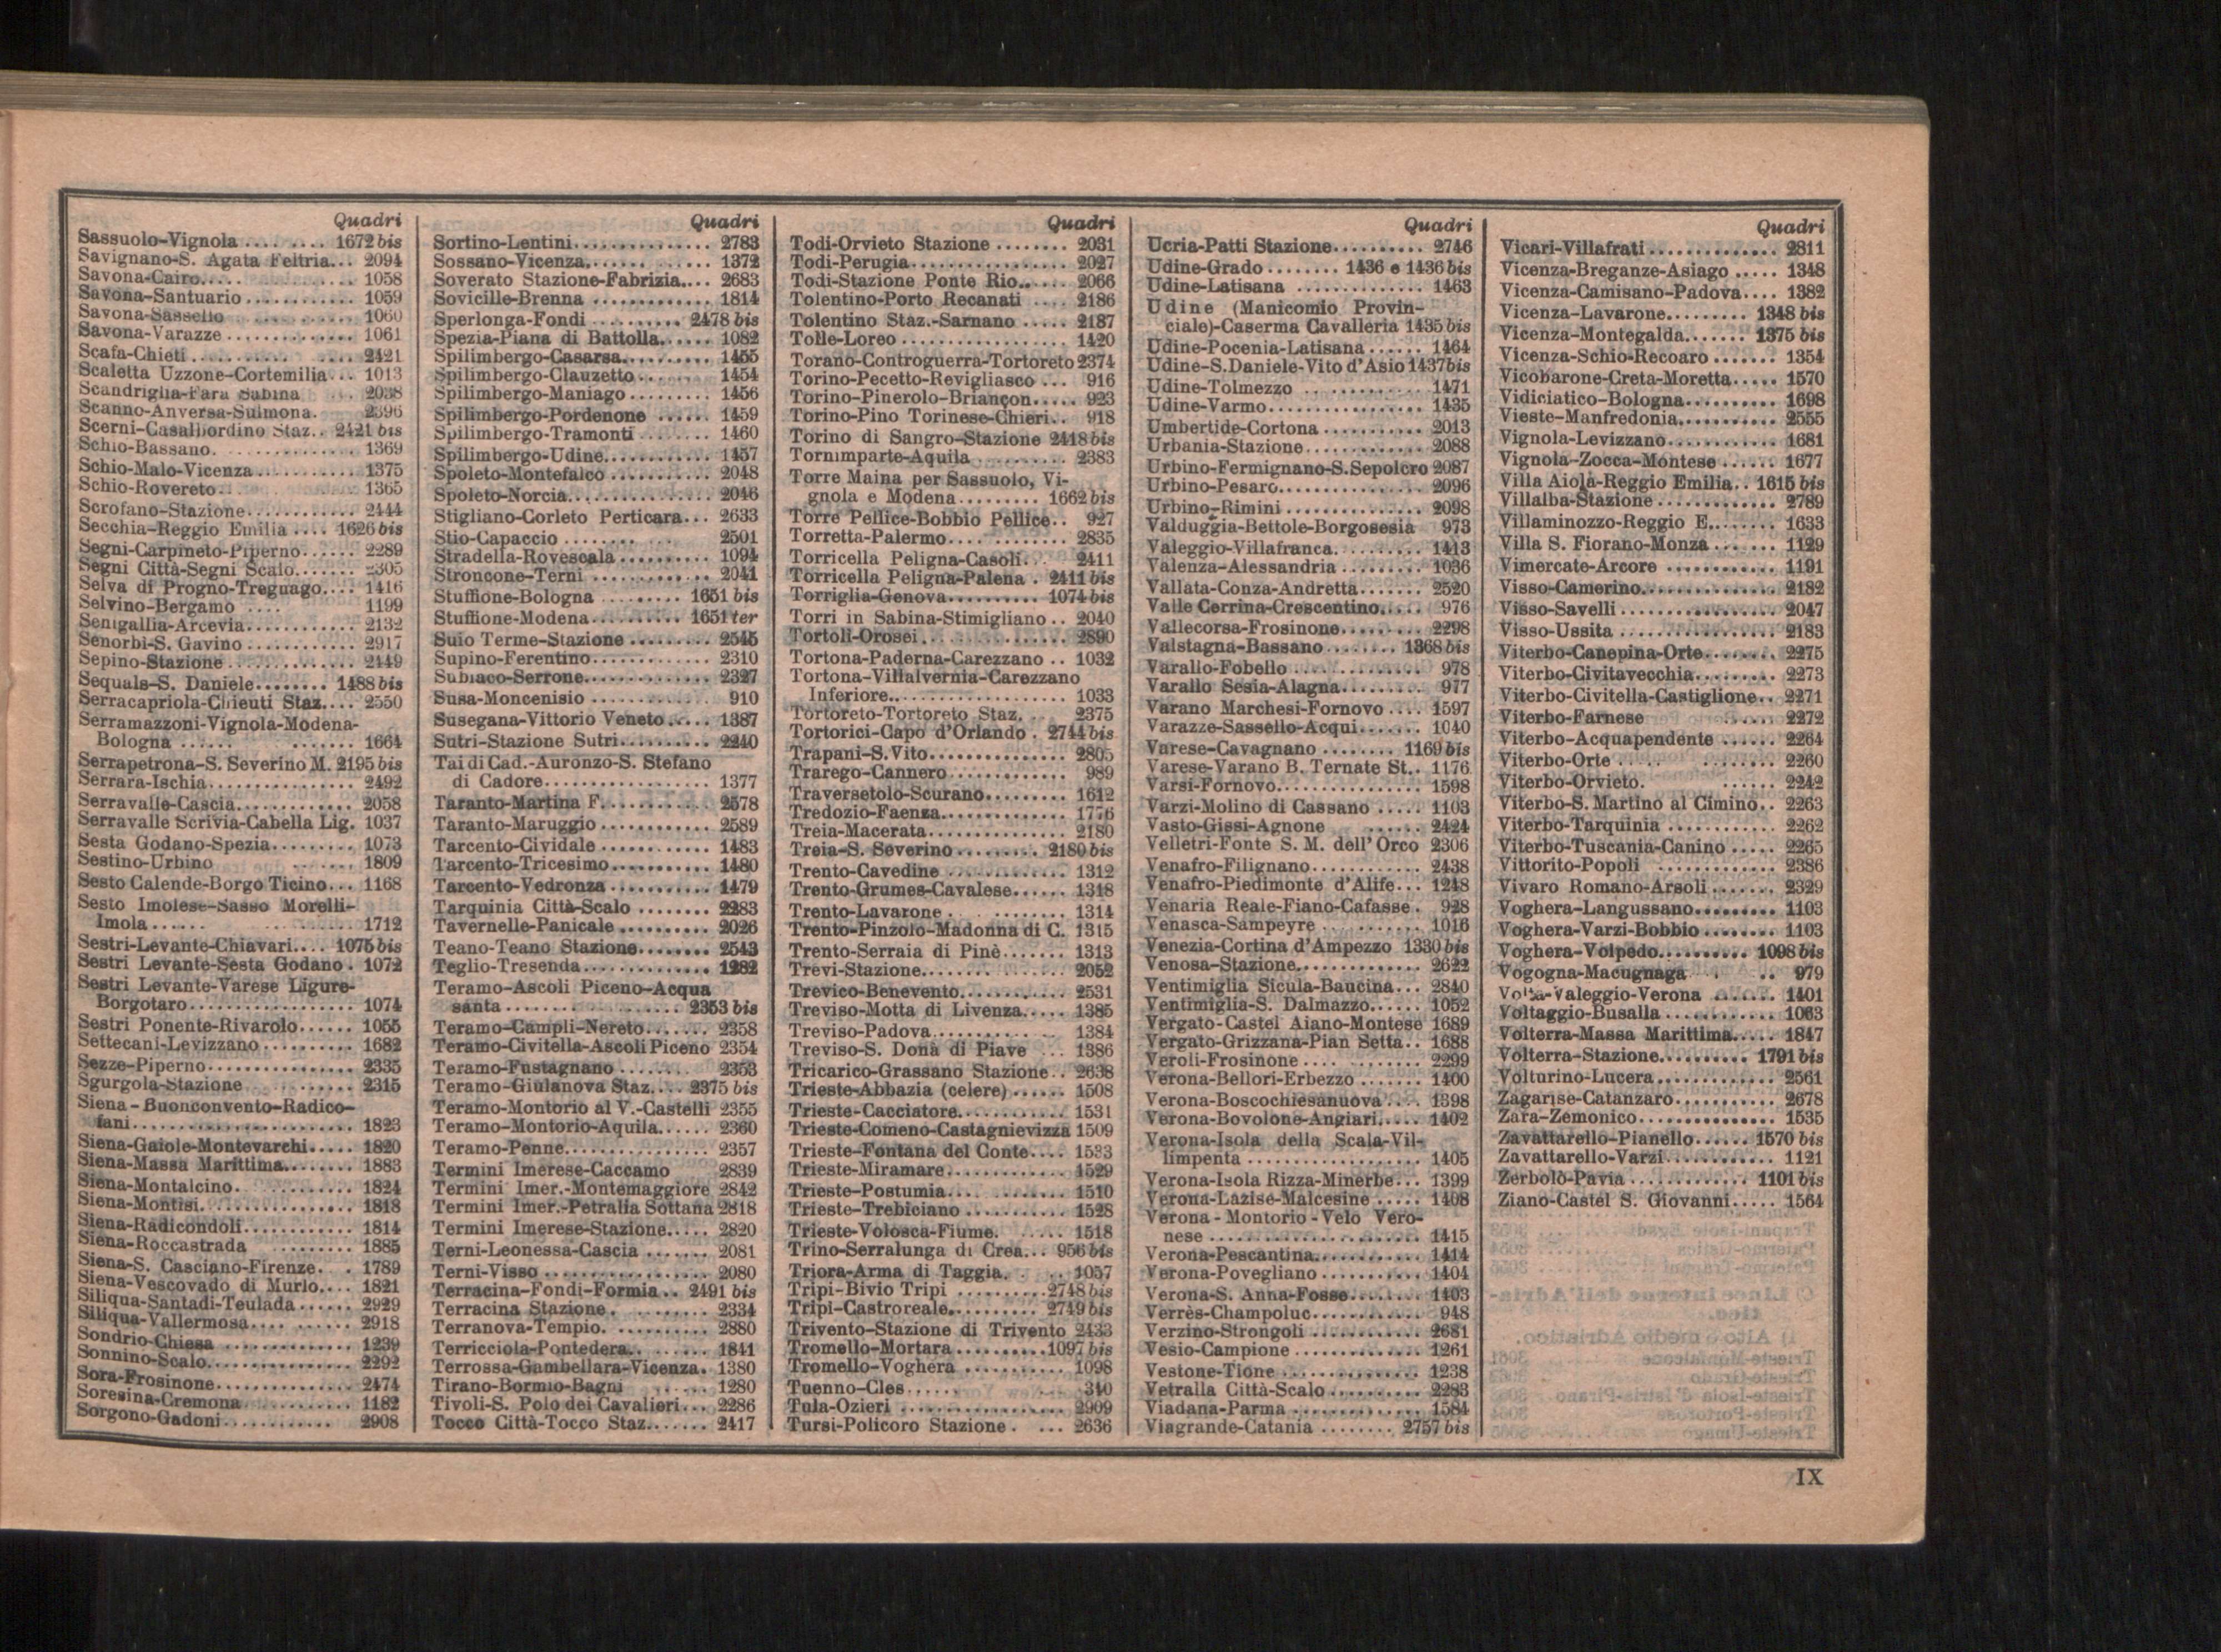 Quadri
Sassuolo-Vignola .... .... 1672 bis
Savignano-S. Agata Feltria... 2094
Savona-Cairo..... 1058
Savona-Santuario ............ 1059
Savona-Sassello ............ 1060
Savona-Varazze .............. 1061
Scafa-Chieti .............. 2421
Scaletta Uzzone-Cortemilia... 1013
Scandriglia-Fara Sabina ... 2038
Scanno-Anversa-Sulmona. 2396
Scerni-Casalbordino Staz.. 2421 bis
Schio-Bassano. .............. 1369
Schio-Malo-Vicenza ........... 1375
Schio-Rovereto.. 1365
Scrofano-Stazione............ 2444
Secchia-Reggio Emilia .... 1626 bis
Segni-Carpineto-Piperno...... 2289
Segni Città-Segni Scalo...... 2305
Selva di Progno-Tregnago.... 1416
Selvino-Bergamo .... 1199
Senigallia-Arcevia............ 2132
Senorbì-S. Gavino ............ 2917
Sepino-Stazione .............. 2449
Sequals-S. Daniele........ 1488 bis
Serracapriola-Chieuti Staz.... 2550
Serramazzoni-Vignola-Modena-
Bologna ...... ....... 1664
Serrapetrona-S. Severino M. 2195 bis
Serrara-Ischia................ 2492
Serravalle-Cascia............. 2058
Serravalle Scrivia-Cabella Lig. 1037
Sesta Godano-Spezia......... 1073
Sestino-Urbino ....... 1809
Sesto Calende-Borgo Ticino... 1168
Sesto Imolese-Sasso Morelli-
Imola...... ......... 1712
Sestri-Levante-Chiavari.... 1075 bis
Sestri Levante-Sesta Godano . 1072
Sestri Levante-Varese Ligure-
Borgotaro.................. 1074
Sestri Ponente-Rivarolo...... 1055
Settecani-Levizzano .......... 1682
Sezze-Piperno................ 2335
Sgurgola-Stazione ........ 2315
Siena-Buonconvento-Radico-
fani........................ 1823
Siena-Gaiole-Montevarchi..... 1820
Siena-Massa Marittima........ 1883
Siena-Montalcino. .......... 1824
Siena-Montisi................. 1818
Siena-Radicondoli............ 1814
Siena-Roccastrada ......... 1885
Siena-S. Casciano-Firenze. . 1789
Siena-Vescovado di Murlo.... 1821
Siliqua-Santadi-Teulada...... 2929
Siliqua-Vallermosa.... ...... 2918
Sondrio-Chiesa .............. 1239
Sonnino-Scalo................ 2292
Sora-Frosinone............... 2474
Soresina-Cremona............ 1182
Sorgono-Gadoni............ 2908
Quadri
Sortino-Lentini............... 2783
Sossano-Vicenza....... ...... 1372
Soverato Stazione-Fabrizia.... 2683
Sovicille-Brenna ............. 1814
Sperlonga-Fondi .......... 2478 bis
Spezia-Piana di Battolla...... 1082
Spilimbergo-Casarsa.......... 1455
Spilimbergo-Clauzetto........ 1454
Spilimbergo-Maniago......... 1456
Spilimbergo-Pordenone ...... 1459
Spilimbergo-Tramonti ........ 1460
Spilimbergo-Udine............ 1457
Spoleto-Montefalco ........... 2048
Spoleto-Norcia................ 2046
Stigliano-Corleto Perticara... 2633
Stio-Capaccio ........ .. . 2501
Stradella-Rovescala .......... 1094
Stroncone-Terni ............. 2041
Stuffione-Bologna ......... 1651 bis
Stuffione-Modena.......... 1651 ter
Suio Terme-Stazione ......... 2545
Supino-Ferentino............. 2310
Subiaco-Serrone.............. 2327
Susa-Moncenisio ............. 910
Susegana-Vittorio Veneto ..... 1387
Sutri-Stazione Sutri.......... 2240
Tai di Cad.-Auronzo-S. Stefano
di Cadore.................. 1377
Taranto-Martina F............ 2578
Taranto-Maruggio ............ 2589
Tarcento-Cividale ............ 1483
Tarcento-Tricesimo........... 1480
Tarcento-Vedronza ........... 1479
Tarquinia Città-Scalo ........ 2283
Tavernelle-Panicale .......... 2026
Teano-Teano Stazione........ 2543
Teglio-Tresenda.............. 1282
Teramo-Ascoli Piceno-Acqua
santa........ ........ 2353 bis
Teramo-Campli-Nereto....... 2358
Teramo-Civitella-Ascoli Piceno 2354
Teramo-Fustagnano ....... 2353
Teramo-Giulanova Staz.... 2375 bis
Teramo-Montorio al V.-Castelli 2355
Teramo-Montorio-Aquila...... 2360
Teramo-Penne................ 2357
Termini Imerese-Caccamo 2839
Termini Imer.-Montemaggiore 2842
Termini Imer.-Petralia Sottana 2818
Termini Imerese-Stazione..... 2820
Terni-Leonessa-Cascia ....... 2081
Terni-Visso .................. 2080
Terracina-Fondi-Formia .. 2491 bis
Terracina Stazione. ........ 2334
Terranova-Tempio. .......... 2880
Terricciola-Pontedera.. ...... 1841
Terrossa-Gambellara-Vicenza. 1380
Tirano-Bormio-Bagni ...... 1280
Tivoli-S. Polo dei Cavalieri... 2286
Tocco Città-Tocco Staz....... 2417
Quadri
Todi-Orvieto Stazione ........ 2031
Todi-Perugia................. 2027
Todi-Stazione Ponte Rio...... 2066
Tolentino-Porto Recanati .... 2186
Tolentino Staz.-Sarnano ..... 2187
Tolle-Loreo .................. 1420
Torano-Controguerra-Tortoreto 2374
Torino-Pecetto-Revigliasco ... 916
Torino-Pinerolo-Briançon..... 923
Torino-Pino Torinese-Chieri.. 918
Torino di Sangro-Stazione 2418 bis
Tornimparte-Aquila .......... 2383
Torre Maina per Sassuolo, Vi-
gnola e Modena......... 1662 bis
Torre Pellice-Bobbio Pellice.. 927
Torretta-Palermo.... ........ 2835
Torricella Peligna-Casoli... 2411
Torricella Peligna-Palena . 2411 bis
Torriglia-Genova.......... 1074 bis
Torri in Sabina-Stimigliano .. 2040
Tortolì-Orosei................ 2890
Tortona-Paderna-Carezzano .. 1032
Tortona-Villalvernia-Carezzano
Inferiore.................... 1033
Tortoreto-Tortoreto Staz. .. 2375
Tortorici-Capo d'Orlando . 2744 bis
Trapani-S. Vito............... 2805
Trarego-Cannero............. 989
Traversetolo-Scurano......... 1612
Tredozio-Faenza.............. 1776
Treia-Macerata............... 2180
Treia-S. Severino ......... 2180 bis
Trento-Cavedine ............. 1312
Trento-Grumes-Cavalese...... 1318
Trento-Lavarone . ........ 1314
Trento-Pinzolo-Madonna di C. 1315
Trento-Serraia di Pinè....... 1313
Trevi-Stazione................ 2052
Trevico-Benevento............ 2531
Treviso-Motta di Livenza..... 1385
Treviso-Padova............ 1384
Treviso-S. Donà di Piave ... 1386
Tricarico-Grassano Stazione.. 2638
Trieste-Abbazia (celere) ...... 1508
Trieste-Cacciatore............ 1531
Trieste-Comeno-Castagnievizza 1509
Trieste-Fontana del Conte.... 1533
Trieste-Miramare............. 1529
Trieste-Postumia.... ........ 1510
Trieste-Trebiciano ........... 1528
Trieste-Volosca-Fiume. ..... 1518
Trino-Serralunga di Crea.. 956 bis
Triora-Arma di Taggia. . .. 1057
Tripi-Bivio Tripi .......... 2748 bis
Tripi-Castroreale.......... 2749 bis
Trivento-Stazione di Trivento 2433
Tromello-Mortara .......... 1097 bis
Tromello-Voghera ........... 1098
Tuenno-Cles...... 340
Tula-Ozieri .................. 2909
Tursi-Policoro Stazione . ... 2636
Quadri
Ucria-Patti Stazione.......... 2746
Udine-Grado ........ 1436 e 1436 bis
Udine-Latisana .............. 1463
Udine (Manicomio Provin-
ciale)-Caserma Cavalleria 1435 bis
Udine-Pocenia-Latisana ...... 1464
Udine-S.Daniele-Vito d'Asio 1437bis
Udine-Tolmezzo .............. 1471
Udine-Varmo................. 1435
Umbertide-Cortona ........... 2013
Urbania-Stazione............. 2088
Urbino-Fermignano-S.Sepolcro 2087
Urbino-Pesaro................ 2096
Urbino-Rimini ............... 2098
Valduggia-Bettole-Borgosesia 973
Valeggio-Villafranca.......... 1413
Valenza-Alessandria ......... 1036
Vallata-Conza-Andretta....... 2520
Valle Cerrina-Crescentino..... 976
Vallecorsa-Frosinone......... 2298
Valstagna-Bassano........ 1368 bis
Varallo-Fobello .............. 978
Varallo Sesia-Alagna......... 977
Varano Marchesi-Fornovo .... 1597
Varazze-Sassello-Acqui....... 1040
Varese-Cavagnano ........ 1169 bis
Varese-Varano B. Ternate St.. 1176
Varsi-Fornovo................ 1598
Varzi-Molino di Cassano ..... 1103
Vasto-Gissi-Agnone ...... 2424
Velletri-Fonte S. M. dell'Orco 2306
Venafro-Filignano............ 2438
Venafro-Piedimonte d'Alife... 1248
Venaria Reale-Fiano-Cafasse. 928
Venasca-Sampeyre ........... 1016
Venezia-Cortina d'Ampezzo 1330 bis
Venosa-Stazione.............. 2622
Ventimiglia Sicula-Baucina... 2840
Ventimiglia-S. Dalmazzo...... 1052
Vergato-Castel Aiano-Montese 1689
Vergato-Grizzana-Pian Setta.. 1688
Veroli-Frosinone .... ....... 2299
Verona-Bellori-Erbezzo ....... 1400
Verona-Boscochiesanuova .... 1398
Verona-Bovolone-Angiari..... 1402
Verona-Isola della Scala-Vil-
limpenta ................... 1405
Verona-Isola Rizza-Minerbe... 1399
Verona-Lazise-Malcesine ..... 1408
Verona-Montorio-Velo Vero-
nese ....................... 1415
Verona-Pescantina............ 1414
Verona-Povegliano ........... 1404
Verona-S. Anna-Fosse........ 1403
Verrès-Champoluc............ 948
Verzino-Strongoli ............ 2681
Vesio-Campione .............. 1261
Vestone-Tione ............... 1238
Vetralla Città-Scalo .......... 2283
Viadana-Parma .............. 1584
Viagrande-Catania ........ 2757 bis
Quadri
Vicari-Villafrati .............. 2811
Vicenza-Breganze-Asiago ..... 1348
Vicenza-Camisano-Padova.... 1382
Vicenza-Lavarone......... 1348 bis
Vicenza-Montegalda....... 1375 bis
Vicenza-Schio-Recoaro ....... 1354
Vicobarone-Creta-Moretta..... 1570
Vidiciatico-Bologna.......... 1698
Vieste-Manfredonia........... 2555
Vignola-Levizzano............ 1681
Vignola-Zocca-Montese ...... 1677
Villa Aiola-Reggio Emilia.. 1615 bis
Villalba-Stazione ............. 2789
Villaminozzo-Reggio E........ 1633
Villa S. Fiorano-Monza ....... 1129
Vimercate-Arcore ............ 1191
Visso-Camerino............... 2182
Visso-Savelli ................. 2047
Visso-Ussita ................. 2183
Viterbo-Canepina-Orte........ 2275
Viterbo-Civitavecchia......... 2273
Viterbo-Civitella-Castiglione.. 2271
Viterbo-Farnese ..... 2272
Viterbo-Acquapendente ...... 2264
Viterbo-Orte ..... ........ 2260
Viterbo-Orvieto. ...... 2242
Viterbo-S. Martino al Cimino.. 2263
Viterbo-Tarquinia ............ 2262
Viterbo-Tuscania-Canino ..... 2265
Vittorito-Popoli ............. 2386
Vivaro Romano-Arsoli ....... 2329
Voghera-Langussano......... 1103
Voghera-Varzi-Bobbio ........ 1103
Voghera-Volpedo.......... 1098 bis
Vogogna-Macugnaga . .. 979
Volta-Valeggio-Verona ...... 1401
Voltaggio-Busalla ............ 1063
Volterra-Massa Marittima..... 1847
Volterra-Stazione.......... 1791 bis
Volturino-Lucera............. 2561
Zagarise-Catanzaro........... 2678
Zara-Zemonico............... 1535
Zavattarello-Pianello...... 1570 bis
Zavattarello-Varzi............ 1121
Zerbolò-Pavia ............ 1101 bis
Ziano-Castel S. Giovanni..... 1564
IX